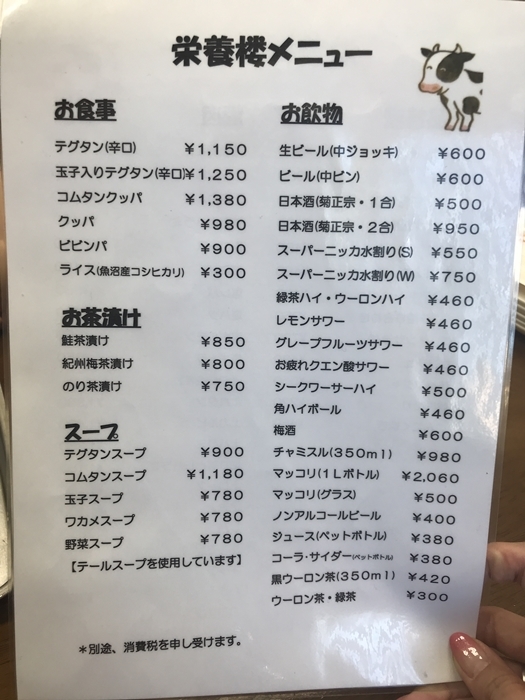 栄養楼メニュー
お食事
テグタン(辛口) ¥1,150
玉子入りテグタン(辛口)¥1,250
コムタンクッパ ¥1,380
クッパ ¥980
ビビンパ ¥900
ライス(魚沼産コシヒカリ) ¥300
お茶漬け
鮭茶漬け ¥850
紀州梅茶漬け ¥800
のり茶漬け ¥750
スープ
テグタンスープ ¥900
コムタンスープ ¥1,180
玉子スープ ¥780
ワカメスープ ¥780
野菜スープ ¥780
【テールスープを使用しています】
お飲物
生ビール(中ジョッキ) ¥600
ビール(中ビン) ¥600
日本酒(菊正宗・1合) ¥500
日本酒(菊正宗・2合) ¥950
スーパーニッカ水割り(S) ¥550
スーパーニッカ水割り(W) ¥750
緑茶ハイ・ウーロンハイ ¥460
レモンサワー ¥460
グレープフルーツサワー ¥460
お疲れクエン酸サワー ¥460
シークワーサーハイ ¥500
角ハイボール ¥460
梅酒 ¥600
チャミスル(350ml) ¥980
マッコリ(1Lボトル) ¥2,060
マッコリ(グラス) ¥500
ノンアルコールビール ¥400
ジュース(ペットボトル) ¥380
コーラ・サイダー(ペットボトル) ¥380
黒ウーロン茶(350ml) ¥420
ウーロン茶・緑茶 ¥300
*別途、消費税を申し受けます。